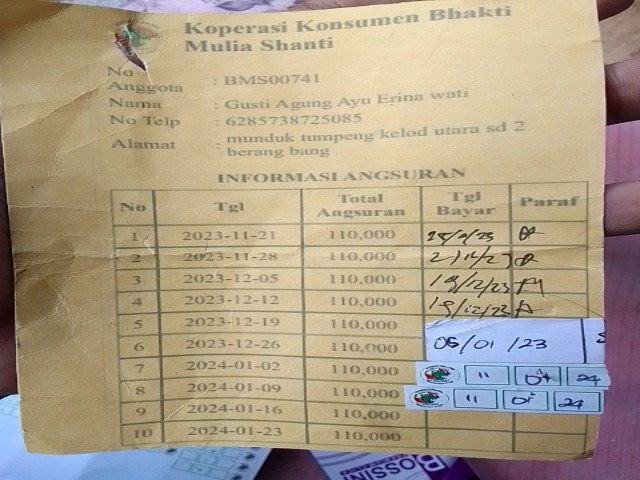 Koperasi Konsumen Bhakti
Mulia Shanti
No
Anggota : BMS00741
Nama : Gusti Agung Ayu Erina wati
No Telp : 6285738725085
Alamat : munduk tumpeng kelod utara sd 2
berang bang
INFORMASI ANGSURAN
No Tgl Total Angsuran Tgl Bayar Paraf
1 2023-11-21 110,000
2 2023-11-28 110,000
3 2023-12-05 110,000 19/12/23
4 2023-12-12 110,000 19/12/23
5 2023-12-19 110,000
6 2023-12-26 110,000 05/01/23
7 2024-01-02 110,000 11 01 24
8 2024-01-09 110,000 11 01 24
9 2024-01-16 110,000
10 2024-01-23 110,000